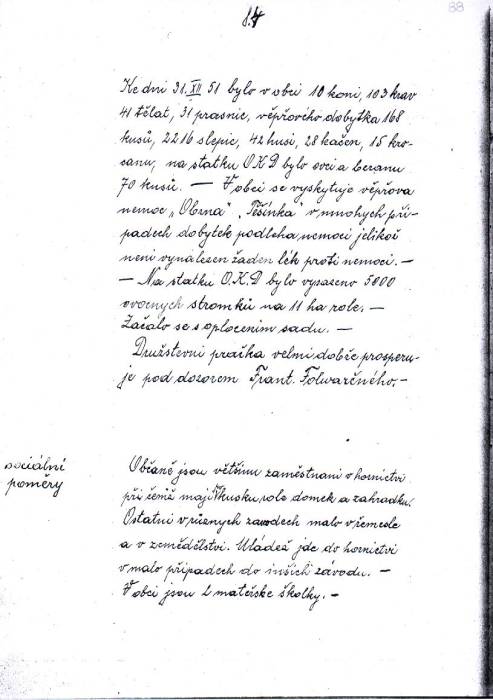 84
88
Ke dni 31. XII 51 bylo v obci 10 koni, 103 krav
41 tělat, 31 prasnic, věpřového dobytka 168
kusů, 2216 slepic, 42 husi, 28 kačen, 15 kro-
canu, na statku O.K.D bylo ovci a beranu
70 kusů. — V obci se vyskytuje věpřova
nemoc „Obrna“, Těšínka" v mnohych pří-
padech dobytek podleha nemoci jelikož
neni vynalezen žaden lék proti nemoci. —
— Na statku O.K.D bylo vysazeno 5000
ovocnych stromků na 11 ha role. —
Začalo se s oplocenim sadu. —
Družstevni pračka velmi dobře prosperu-
je pod dozorem Frant. Folwarčného. —
sociální
poměry
Občaně jsou většinu zaměstnani v hornictvi
při čemž maji kusku role domek a zahradku.
Ostatni v různych zavodech malo v řemesle
a v zemědělstvi. Mládež jde do hornictvi
v malo připadech do inšich závodu. —
V obci jsou 2 mateřske školky. —